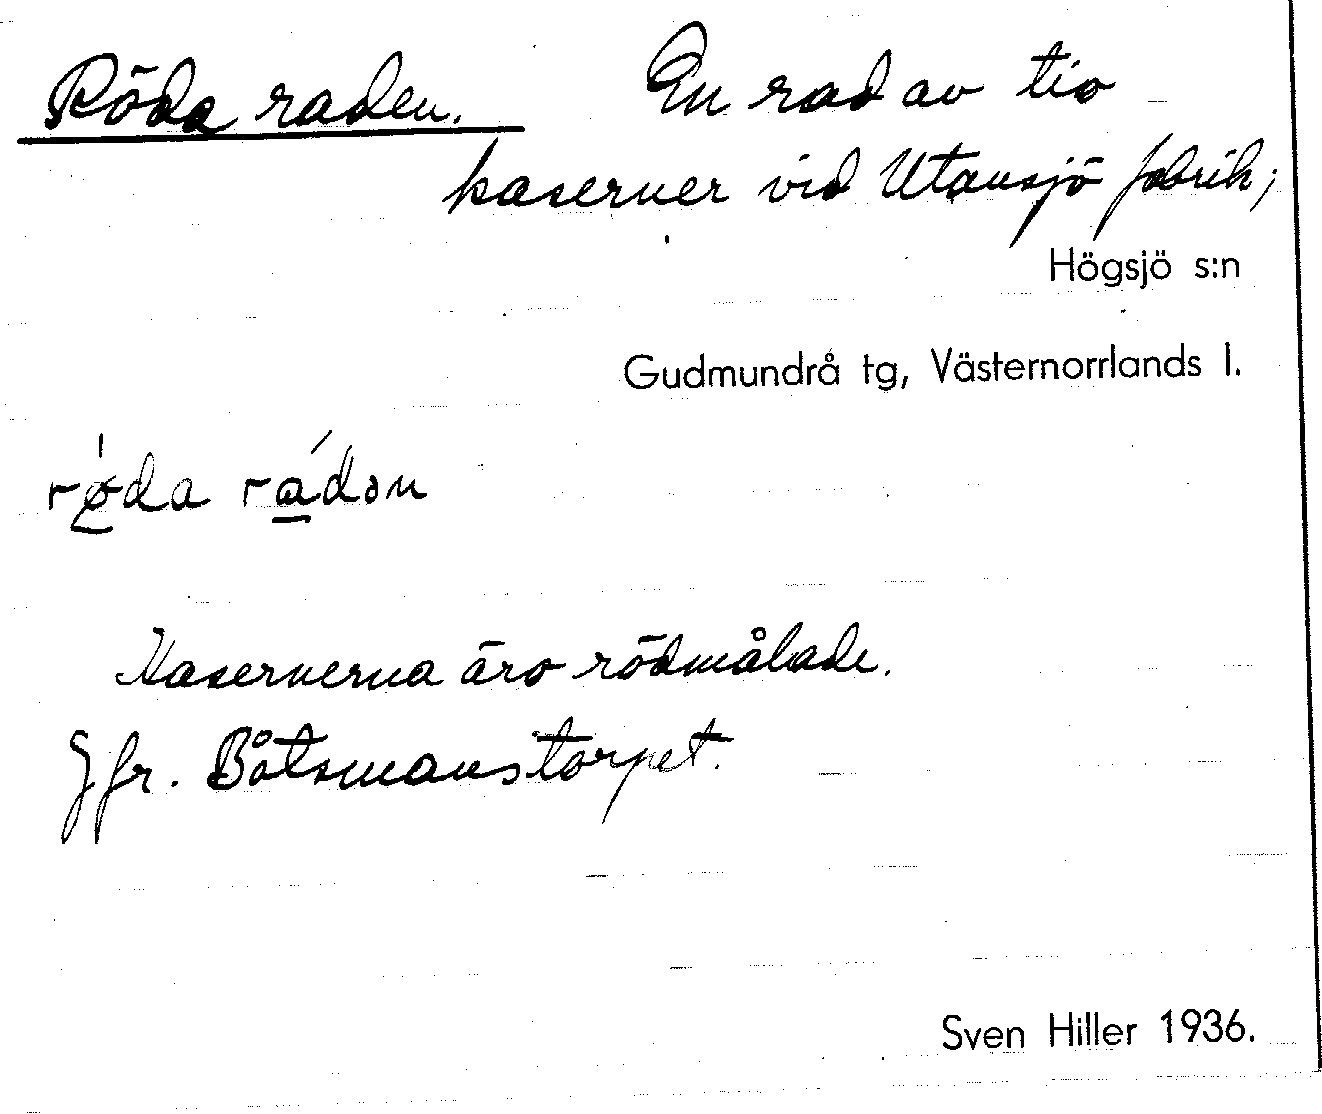 Röda raden. En rad av tio
kaserner vid Utansjö fabrik;
Högsjö s:n
Gudmundrå tg, Västernorrlands l.
rø̱̍da rá̱dən
Kasernerna äro rödmålade.
Jfr. Båtsmanstorpet.
Sven Hiller 1936.